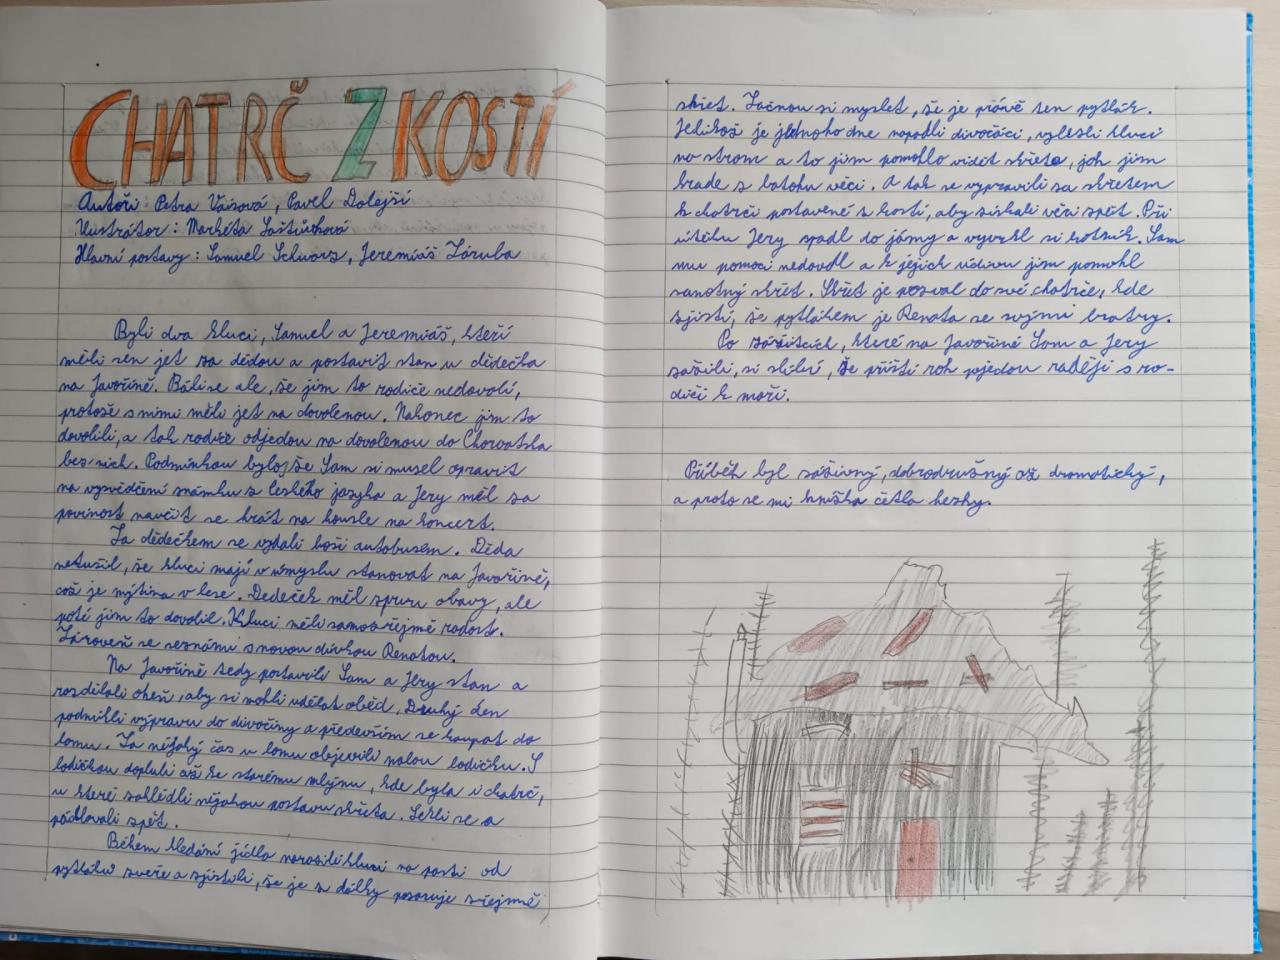 CHATRČ Z KOSTÍ
Autoři: Petra Vaisová, Pavel Dolejší
Ilustrátor: Markéta Laštůvková
Hlavní postavy: Samuel Schwarz, Jeremiáš Záruba
Byli dva kluci, Samuel a Jeremiáš, kteří
měli sen jet za dědou a postavit stan u dědečka
na Javořině. Báli se ale, že jim to rodiče nedovolí,
protože s nimi měli jet na dovolenou. Nakonec jim to
dovolili, a tak rodiče odjedou na dovolenou do Chorvatska
bez nich. Podmínkou bylo, že Sam si musel opravit
na vysvědčení známku z českého jazyka a Jery měl za
povinost naučit se hrát na housle na koncert.
Za dědečkem se vydali kluci autobusem. Děda
netušil, že kluci mají v úmyslu stanovat na Javořině,
což je mýtina v lese. Dedeček měl spuru obavy, ale
poté jim to dovolil. Kluci měli samozřejmě radost.
Zároveň se seznámí s novou dívkou Renatou.
Na Javořině tedy postavili Sam a Jery stan a
rozdělali oheň, aby si mohli udělat oběd. Druhý den
podnikli výpravu do divočiny a především se koupat do
lomu. Za nějaký čas u lomu objevili malou lodičku. S
lodičkou dopluli až ke starému mlýnu, kde byla i chatrč,
u které zahlédli nějakou postavu skřeta. Lekli se a
pádlovali zpět.
Během hledání jídla narazili kluci na pasti od
pytláků zvěře a zjistili, že je z dálky pozoruje zřejmě
skřet. Začnou si myslet, že je právě ten pytlák.
Jelikož je jednoho dne napadli divočáci, vylezli kluci
na strom a to jim pomohlo vidět skřeta, jak jim
krade z batohu věci. A tak se vypravili za skřetem
k chatrči postavené z kostí, aby získali věci zpět. Při
útěku Jery spadl do jámy a vyvrkl si kotník. Sam
mu pomoci nedovdl a k jejich údivu jim pomohl
samotný skřet. Skřet je pozval do své chatrče, kde
zjistí, že pytlákem je Renata se svými bratry.
Po zážitcích, které na Javořině Sam a Jery
zažili, si slíbí, že příští rok pojedou raději s ro-
diči k moři.
Příběh byl záživný, dobrodružný až dramatický,
a proto se mi knížka četla hezky.